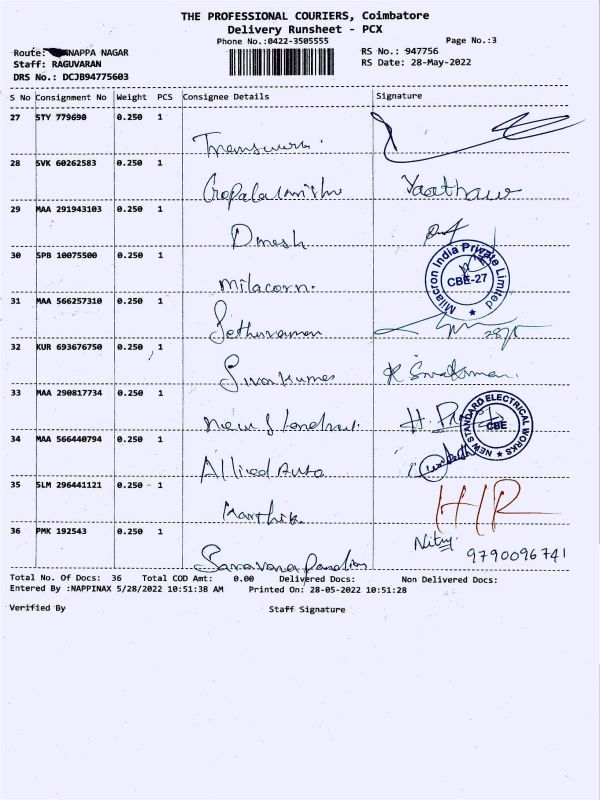 THE PROFESSIONAL COURIERS, Coimbatore
Delivery Runsheet - PCX
Phone No.:0422-3505555
Page No.:3
Route: NAPPA NAGAR
RS No.: 947756
Staff: RAGUVARAN
RS Date: 28-May-2022
DRS No.: DCJB94775603
S No Consignment No Weight PCS Consignee Details Signature
27 STY 779690 0.250 1
28 SVK 60262583 0.250 1
Gopalakrishn
29 MAA 291943103 0.250 1
Dinesh
30 SPB 10075500 0.250 1
Milacorn.
Milacron India Private Limited
CBE-27
31 MAA 566257310 0.250 1
Sethuraman
32 KUR 693676750 0.250 1
Sivakumar
33 MAA 290817734 0.250 1
New Standard
NEW STANDARD ELECTRICAL WORKS
CBE
34 MAA 566440794 0.250 1
Allied Auto
35 SLM 296441121 0.250 1
Karthik
HR
36 PMK 192543 0.250 1
Saravana Pandian
9790096741
Total No. Of Docs: 36 Total COD Amt: 0.00 Delivered Docs: Non Delivered Docs:
Entered By :NAPPINAX 5/28/2022 10:51:38 AM Printed On: 28-05-2022 10:51:28
Verified By Staff Signature